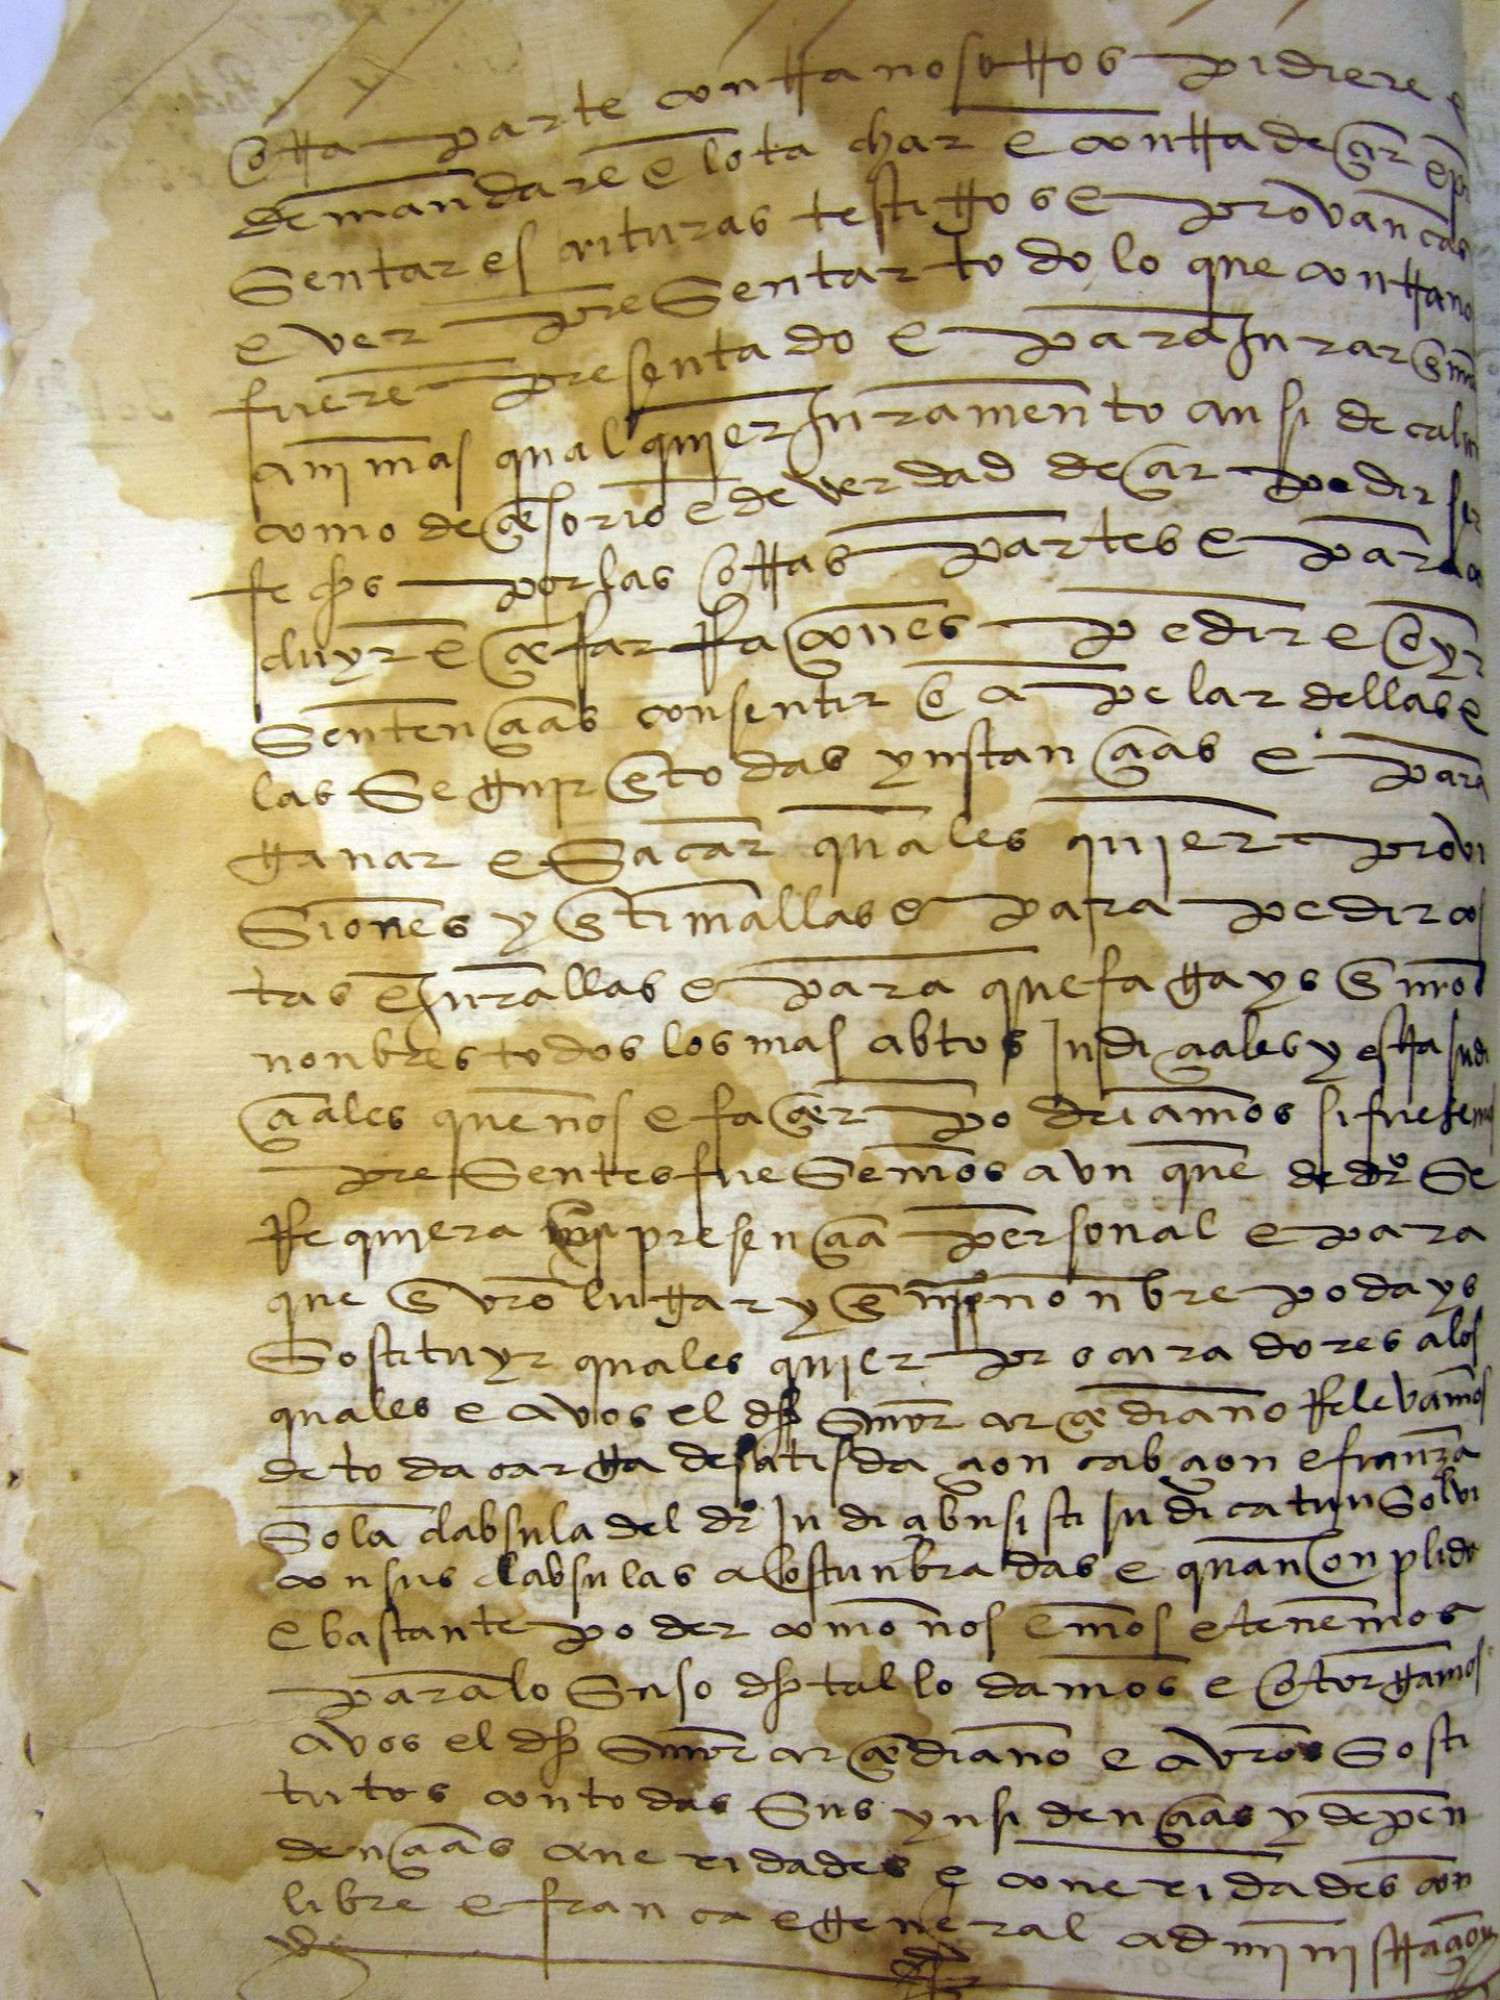 otra parte contra nosotros pidiere e
demandare e lo tachar e contradeçir e pre
sentar escrituras testigos e provanças
e ver presentar todo lo que contra no
fuere presentado e para jurar en nras
animas qualquier juramento ansi de calu
como deçesorio e de verdad deçir pedir ser
fechos por las otras partes e para
cluyr e çerrar rraçones pedir e oyr
sentençias consentir o apelar dellas e
las seguir en todas ynstançias e para
ganar e sacar quales quier provi
siones y entimallas e para pedir cos
tas e jurallas e para que fagays en nro
nonbres todos los mas abtos judiçiales y estrajudi
çiales que nos e façer podriamos si fuesemos
presentes fuesemos aun que de dro se
rrequiera presençia personal e para
que en vro lugar y en nonbre podays
sostituyr quales quier procuradores a los
quales e a vos el dho señor arçediano rrelevamos
de toda carga de satisdaçion cabçion e fiança
so la clabsula del dro judiçium sisti judicatun solvi
con sus clabsulas acostunbradas e quan conplido
e bastante poder como nos emos e tenemos
para lo suso dho tal lo damos e otorgamos
a vos el dho señor arçediano e a vros sosti
tutos con todas sus ynsidençias y depen
dençias anexidades e conexidades con
libre e franca e general administraçion